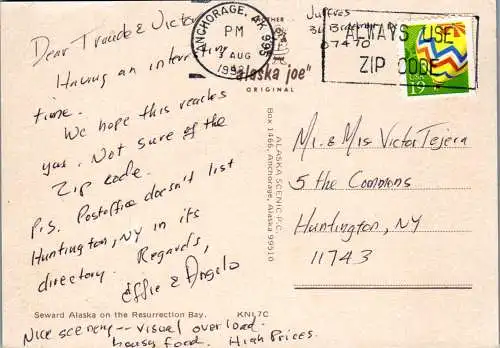 Dear Trude & Victor
Having an interesting
time.
We hope this reaches
you. Not sure of the
Zip code.
P.S. Postoffice doesn't list
Huntington, NY in its
directory. Regards,
Effie & Angelo
Seward Alaska on the Resurrection Bay. KNL7C
Nice scenery -- visual overload.
lousy food. High Prices.
ANCHORAGE, AK 995
PM
3 AUG
1992
"alaska joe"
ORIGINAL
ALASKA SCENIC P.C.
Box 1466, Anchorage, Alaska 99510
07470
ALWAYS USE
ZIP CODE
19
Mr. & Mrs Victor Tejera
5 the Commons
Huntington, NY
11743